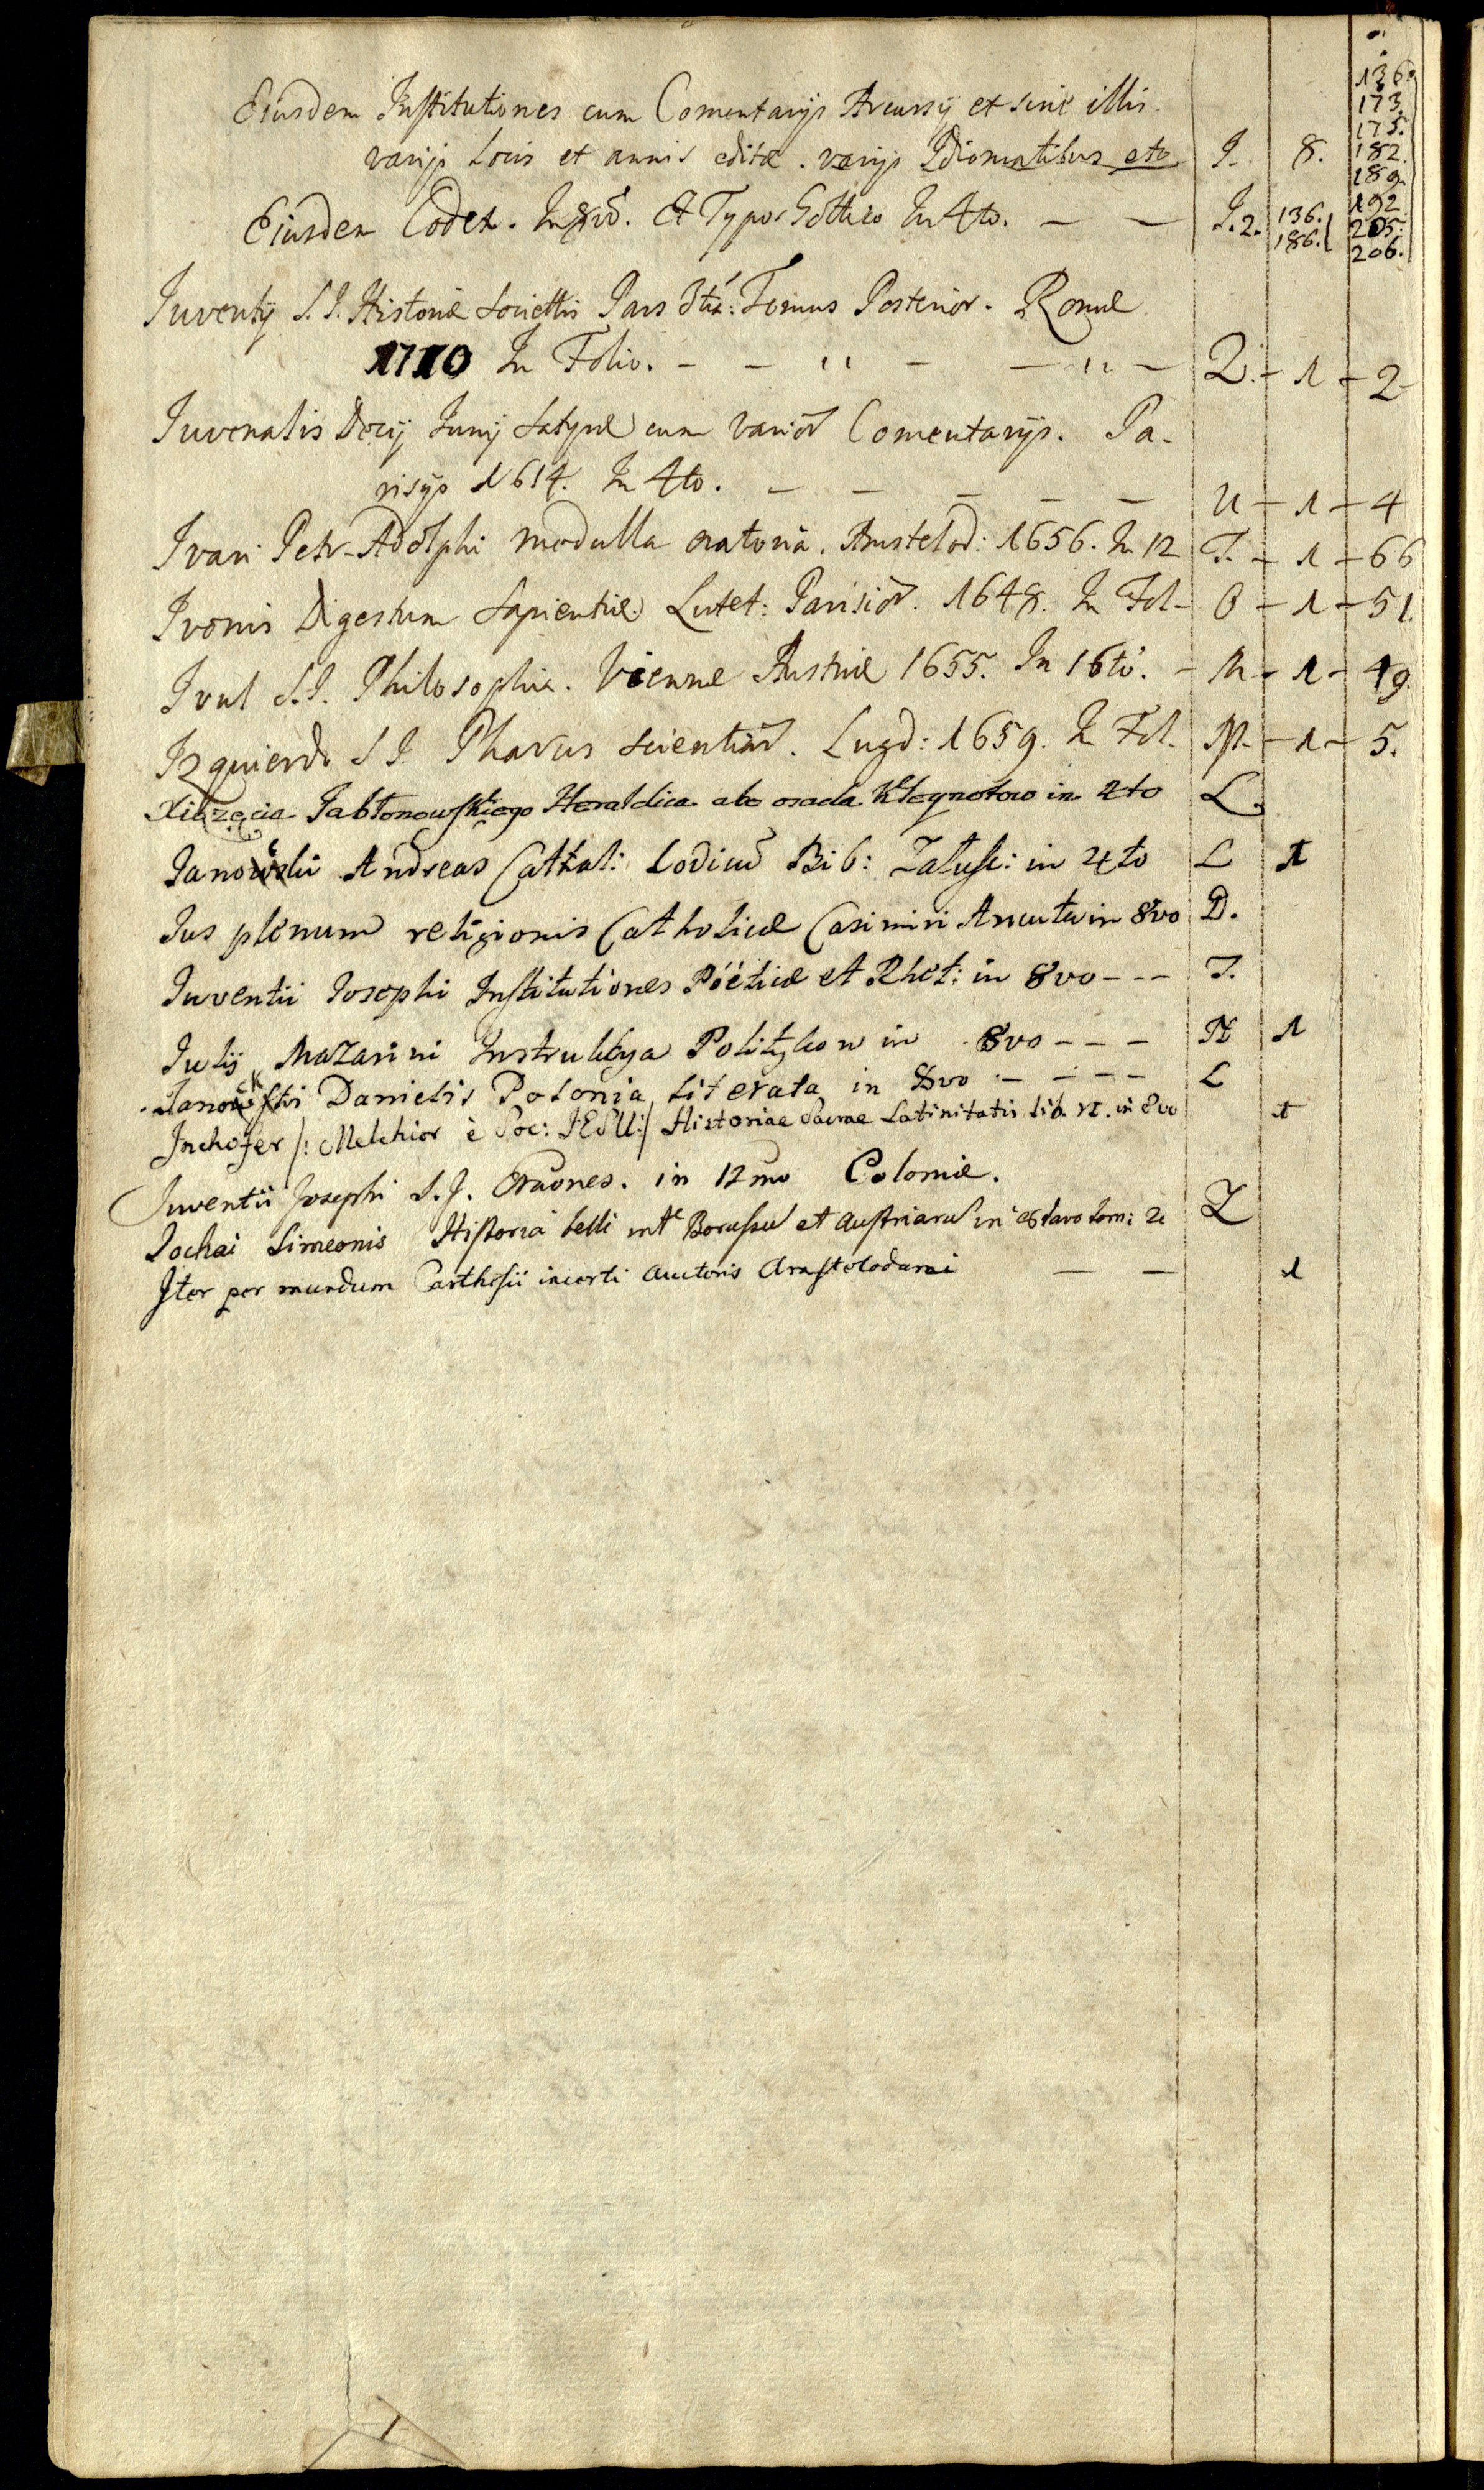 136.
173.
175.
Eiusdem Institutiones cum Comentarijs Arcursij et sine illis
varijs locis et annis editæ. varijs Idiomatibus etc J. 8. 182.
189.
Eiusdem Codex. In 8vo. Et Typo Gottico In 4to. — — J. 2. 136. 192
186. 205.
206.
Iuventij S. I. Historiæ Societtis Pars 5ta: Tomus Posterior. Romæ
1710 In Folio. - - " - - " - Q. - 1 - 2
Iuvenalis Decij Iunij Satyræ cum varior Comentarijs. Pa-
risijs 1614. In 4to. — — — — — U - 1 - 4
Ivari Petr-Adolphi medulla oratoria. Amstelod: 1656. In 12 T. - 1 - 66
Ivonis Digestum Sapientiæ. Lutet: Parisior. 1648. In Fol- O - 1 - 51.
Ivul S. I. Philosophia. Viennæ Austriæ 1655. In 16to. - M - 1 - 49.
Izquierdo S I. Pharus scientiar. Lugd: 1659. In Fol. M - 1 - 5.
Xiążęcia Jabłonowskiego Heraldica abo osada Kleynotow in 4to L
Janoćki Andreas Cathal: Codicu Bib: Zalusc: in 4to L 1
Ius plenum religionis Catholicæ Casimiri Ancuta in 8vo D.
Iuventii Iosephi Institutiones Poëticæ et Rhet: in 8vo - - - T.
Julij Mazarini Instrukcya Politykow in 8vo - - - N 1
Janoćki Danielis Polonia literata in 8vo - - - - L
Inchofer /: Melchior è Soc: JESU:/ Historiae Sacrae Latinitatis lib. VI. in 8vo 1
Iuventii Josephi S. J. Oraones. in 12mo Coloniæ.
Jochai Simeonis Historia belli inte Borussu et Austriacu in octavo tom: 2 Z
Iter per mundum Carthesii incerti Auctoris Amstelodami — — 1